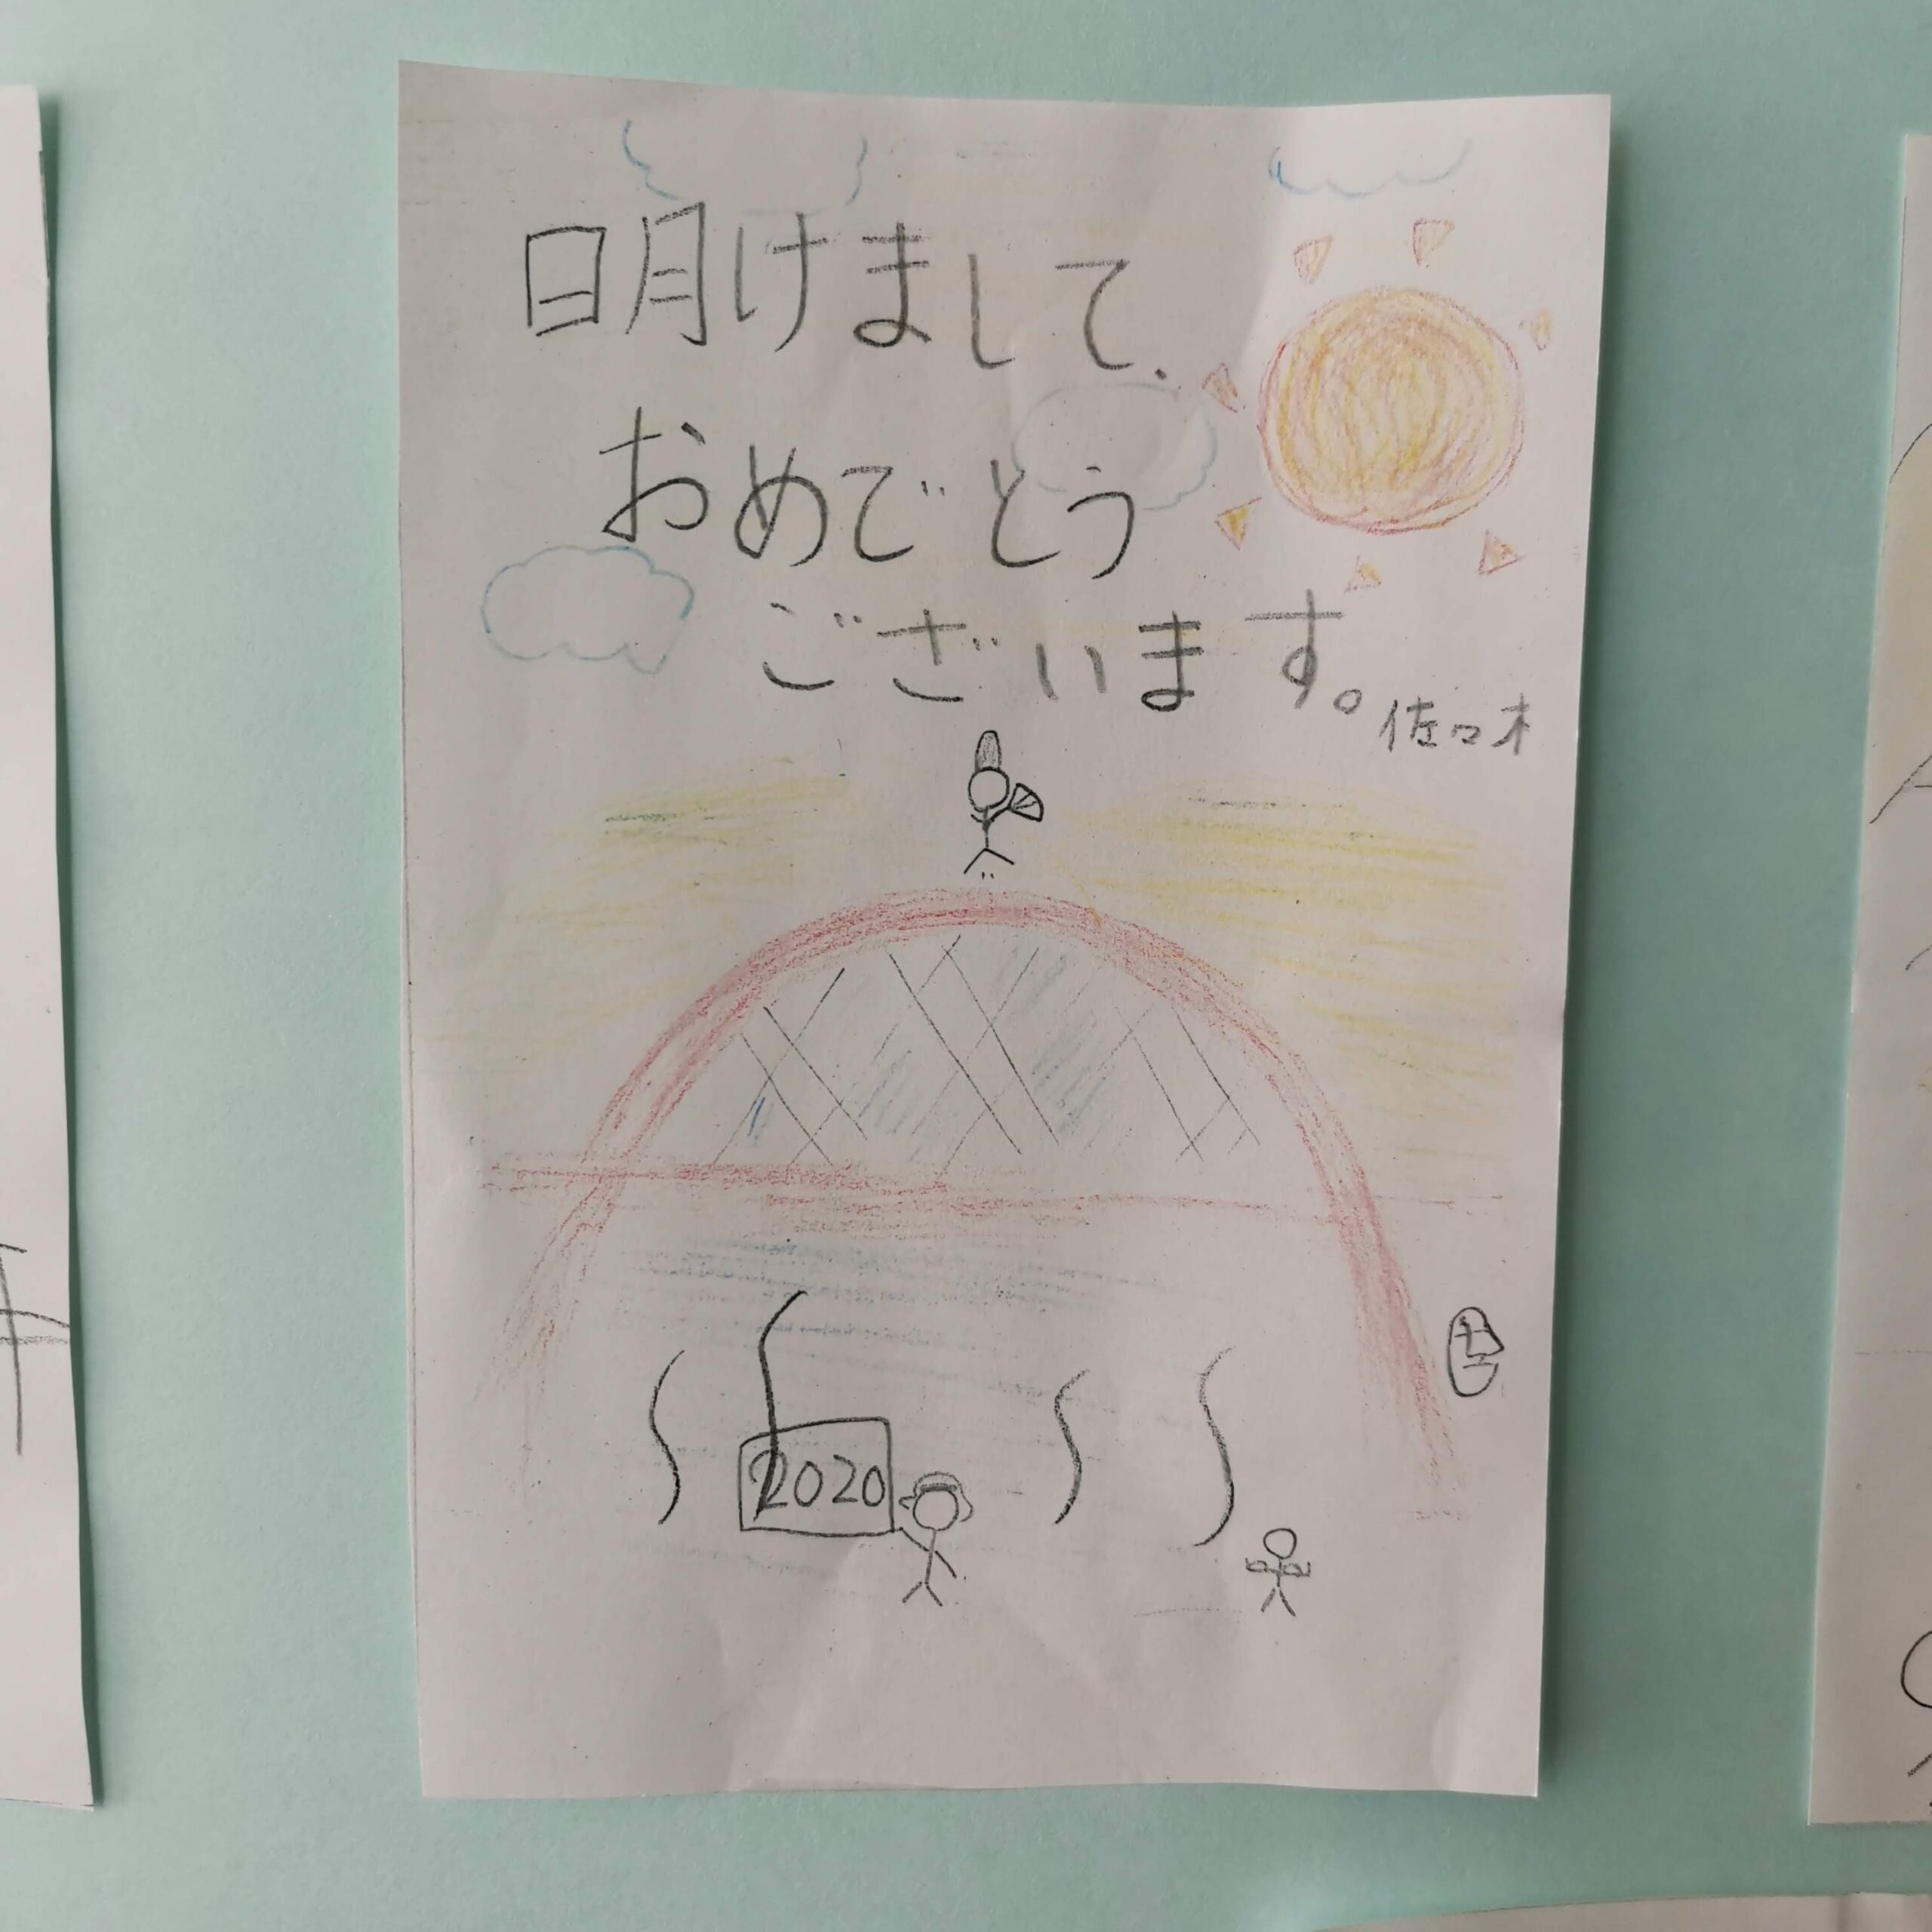 明けまして.
おめでとう
ございます。
佐々木
2020